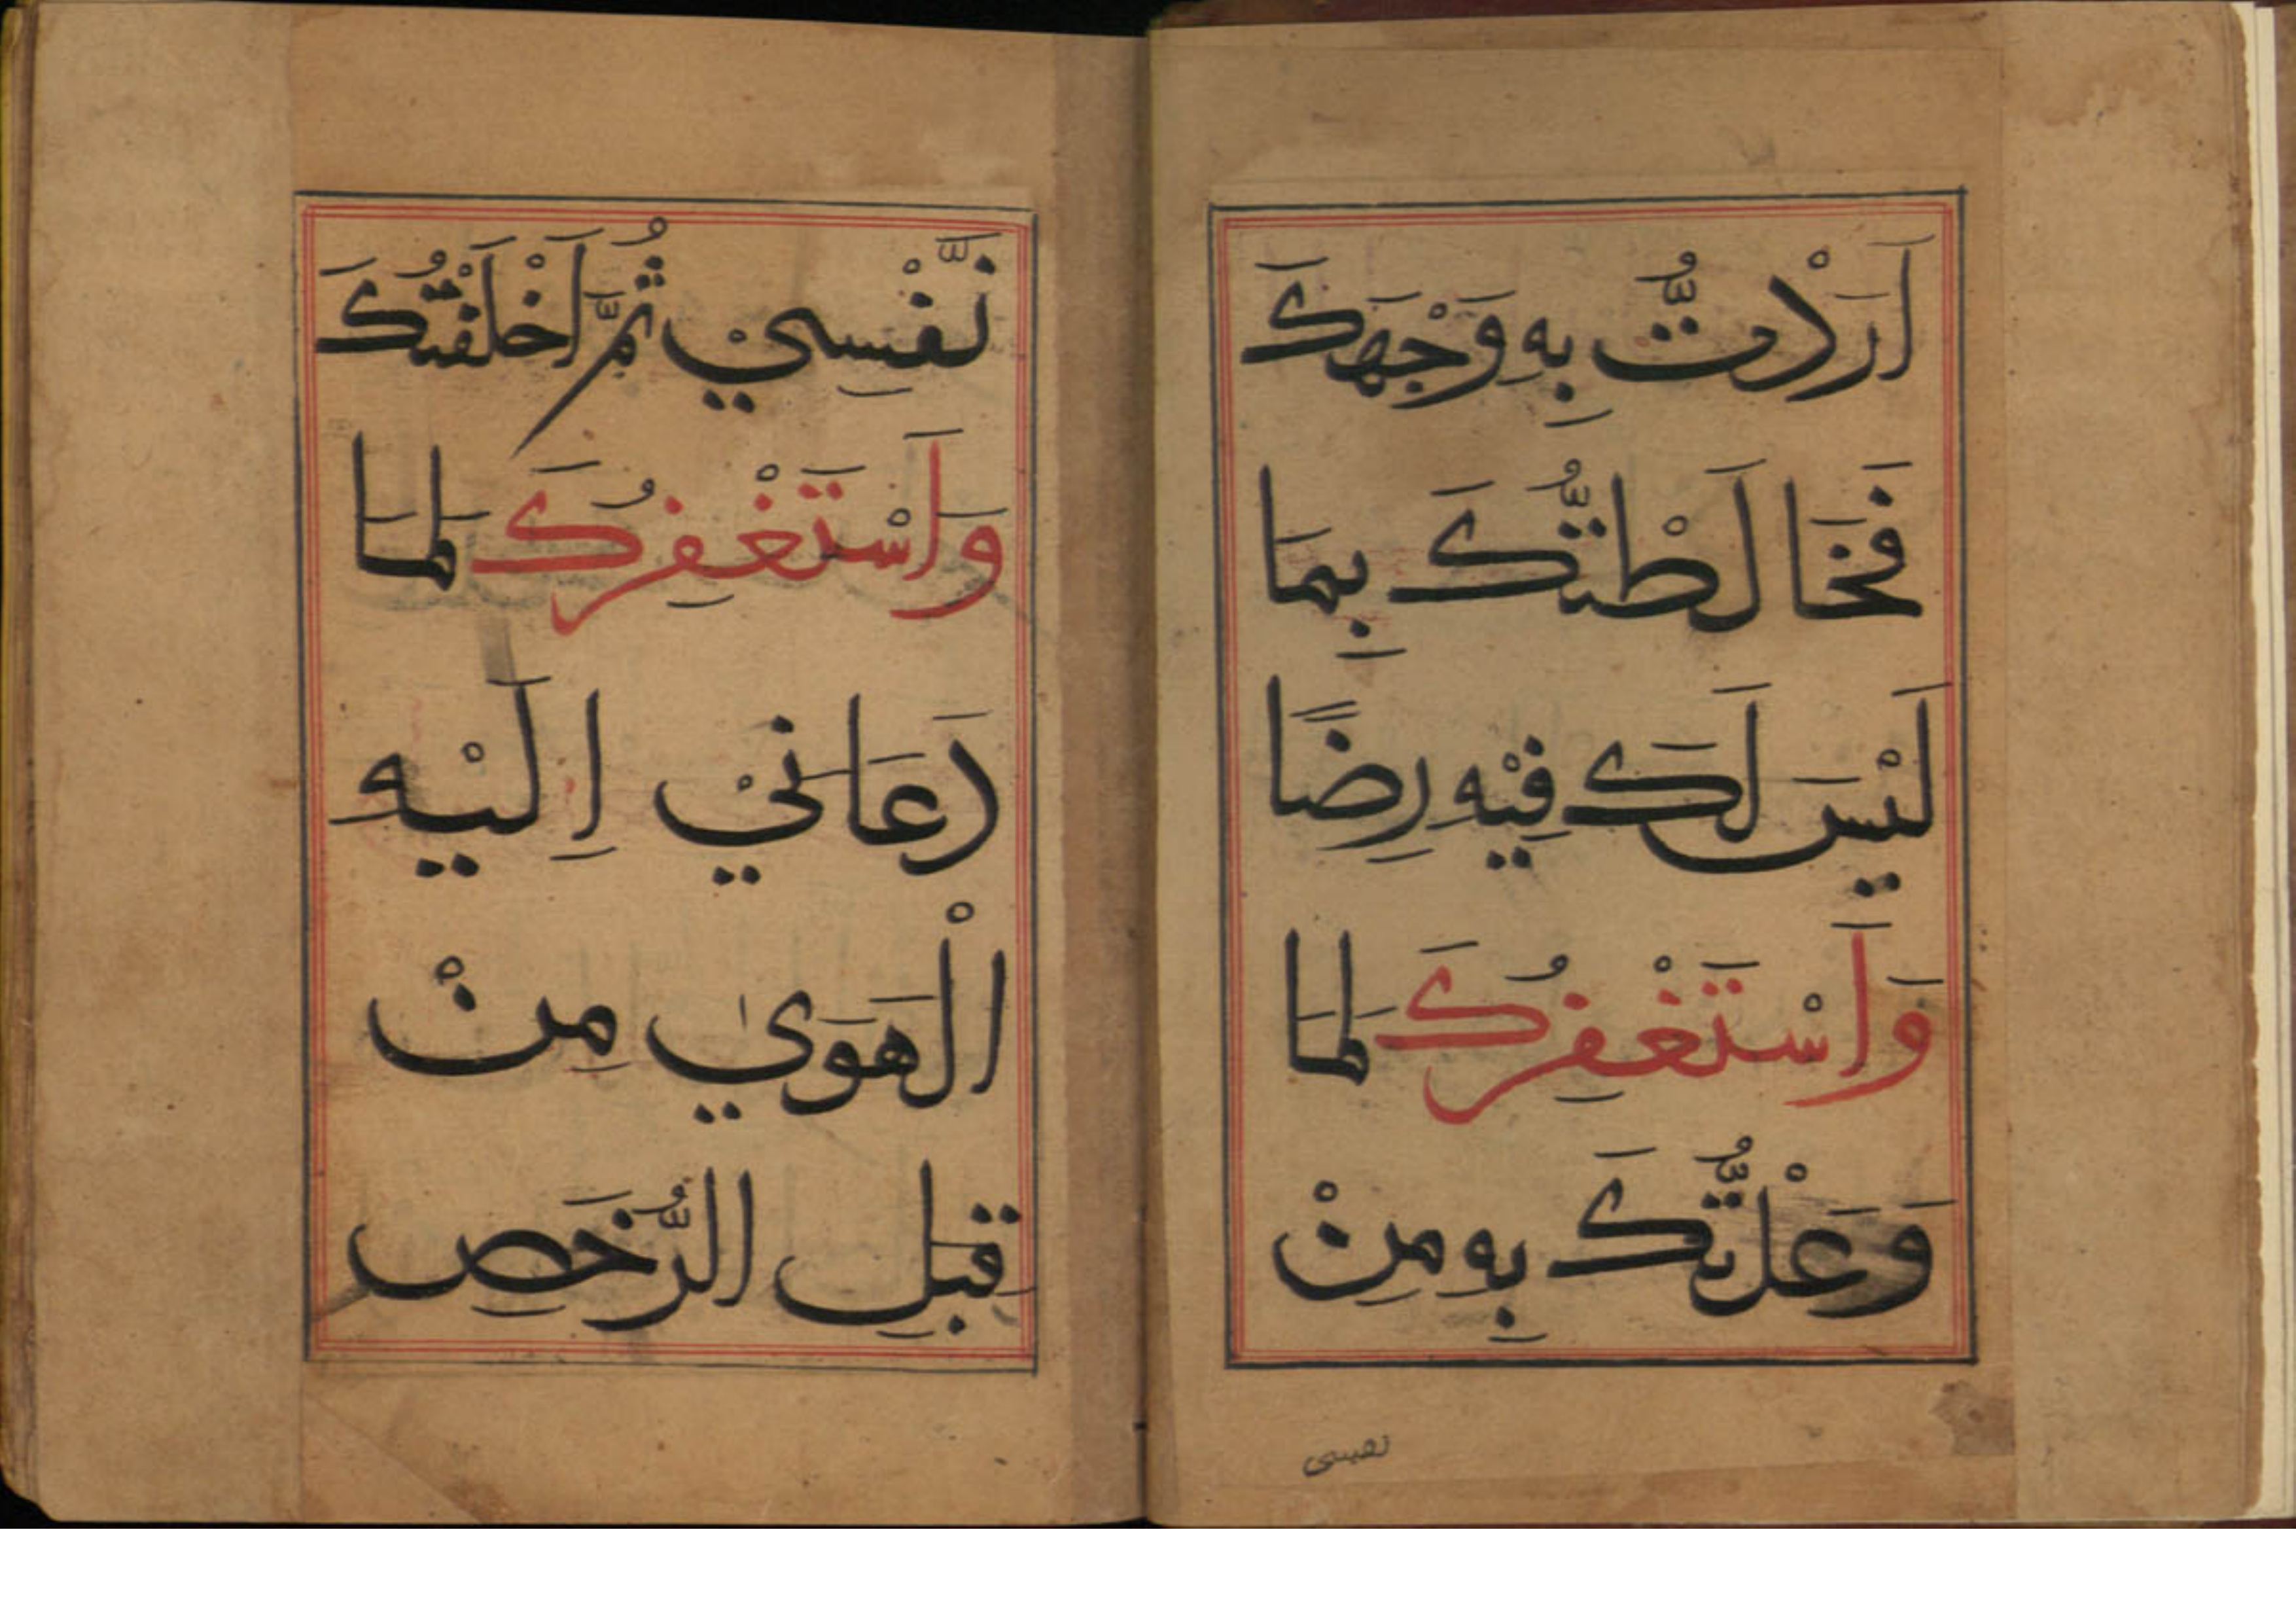 اَرَدْتُّ بِهٖ وَجْهَكَ
فَخَالَطْتُّكَ بِمَا
لَيْسَ لَكَ فِيْهِ رِضًا
وَاَسْتَغْفِرُكَ لِمَا
وَعَدْتُّكَ بِهٖ مِنْ
نَّفْسِيْ ثُمَّ اَخْلَفْتُكَ
وَاَسْتَغْفِرُكَ لِمَا
دَعَانِيْ اِلَيْهِ
الْهَوٰي مِنْ
قِبَلِ الرُّخَصِ